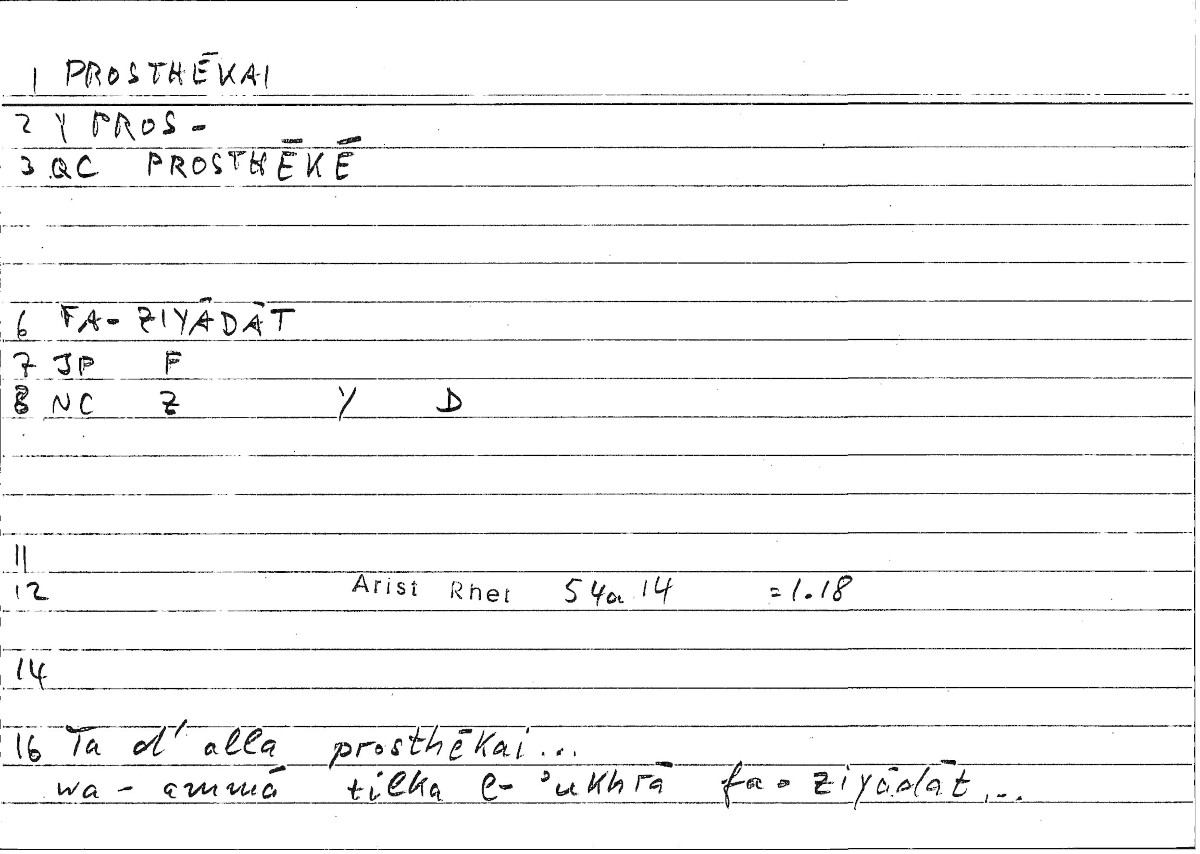 1 PROSTHĒKAI
2 Y PROS-
3 QC PROSTHĒKĒ
6 FA- ZIYĀDĀT
7 JP F
8 NC Z Y D
11
12 Arist Rhet 54a 14 =1.18
14
16 Ta d' alla prosthēkai...
wa-ammā tilka l-'ukhrā fa-ziyādāt...